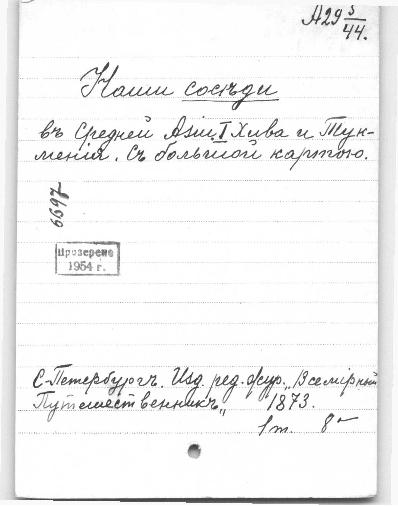 A29 5/44.
Наши сосѣди
въ Средней Азіи. I Хива и Тук-
менія. Съ большой картою.
6697
Проверено
1954 г.
С-Петербургъ. Изд. ред. жур. „Всемірный
Путешественникъ„ 1873.
1 т. 8°